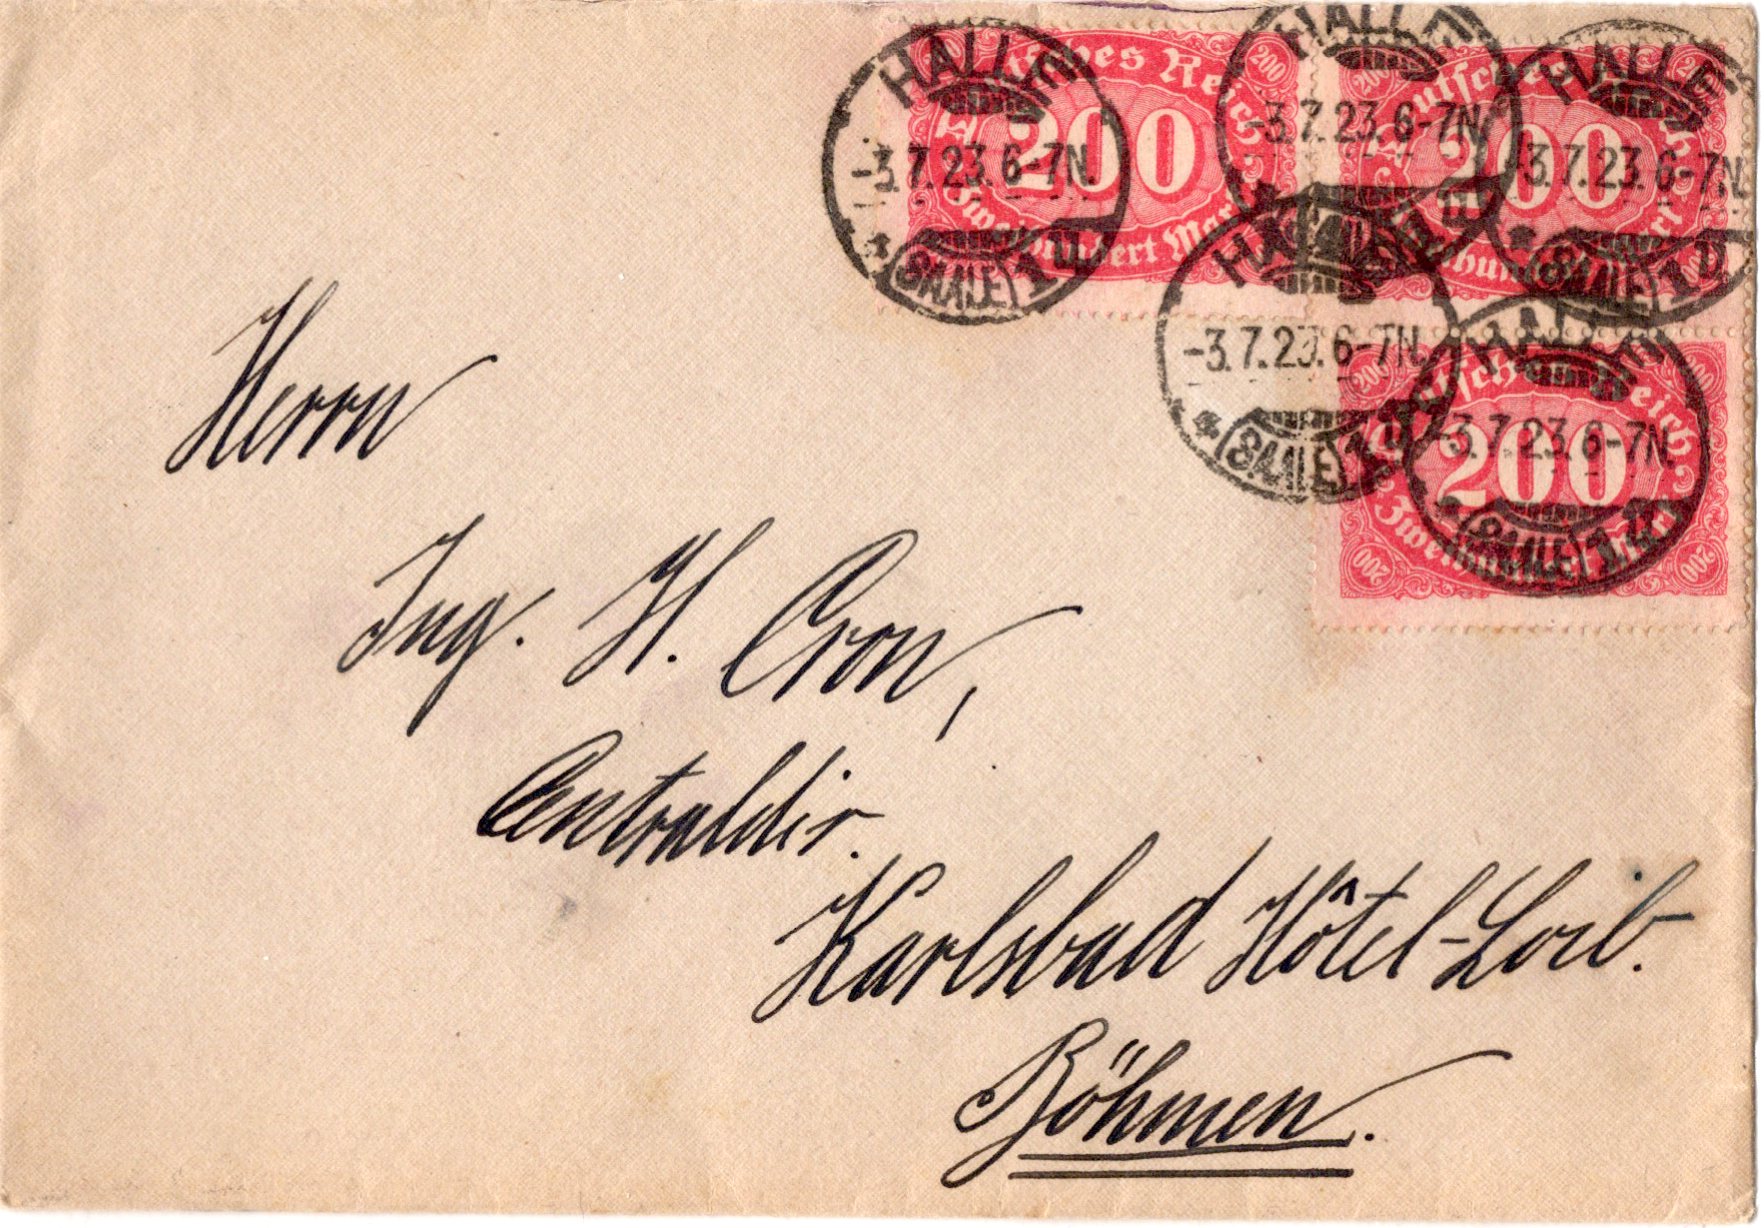 Deutsches Reich
200
Zweihundert Mark
HALLE
-3.7.23.6-7N.
(SAALE) 1 u
200
Deutsches Reich
200
Zweihundert Mark
HALLE
-3.7.23.6-7N.
HALLE
-3.7.23.6-7N.
(SAALE) 1 u
HALLE
-3.7.23.6-7N.
(SAALE) 1
200
Deutsches Reich
200
Zweihundert Mark
200
200
HALLE
-3.7.23.6-7N.
(SAALE) 1
Herrn
Ing. H. Cron,
Centraldir.
Karlsbad Hôtel-Loib.
Böhmen.